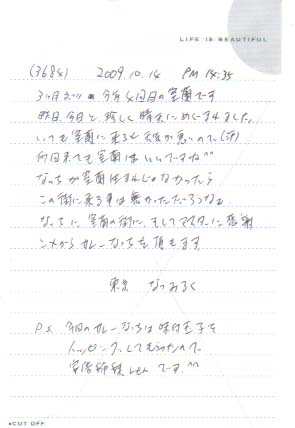 LIFE IS BEAUTIFUL
(3684) 2009.10.14 PM 14:35
3ヶ月ぶり 今年4回目の室蘭です
昨日、今日と、珍しく晴天にめぐまれました。
いつも室蘭に来ると天候が悪いので(汗)
何回来ても室蘭はいいですね^^
なっちが室蘭生まれじゃなかったら
この街に来る事は無かっただろうなぁ
なっちに、室蘭の街に、そしてマスターに感謝
これからカレーなっちを頂きます
東京 なつみるく
P.S. 今回のカレーなっちは味付玉子を
トッピングしてもらったので
です。^^
CUT OFF